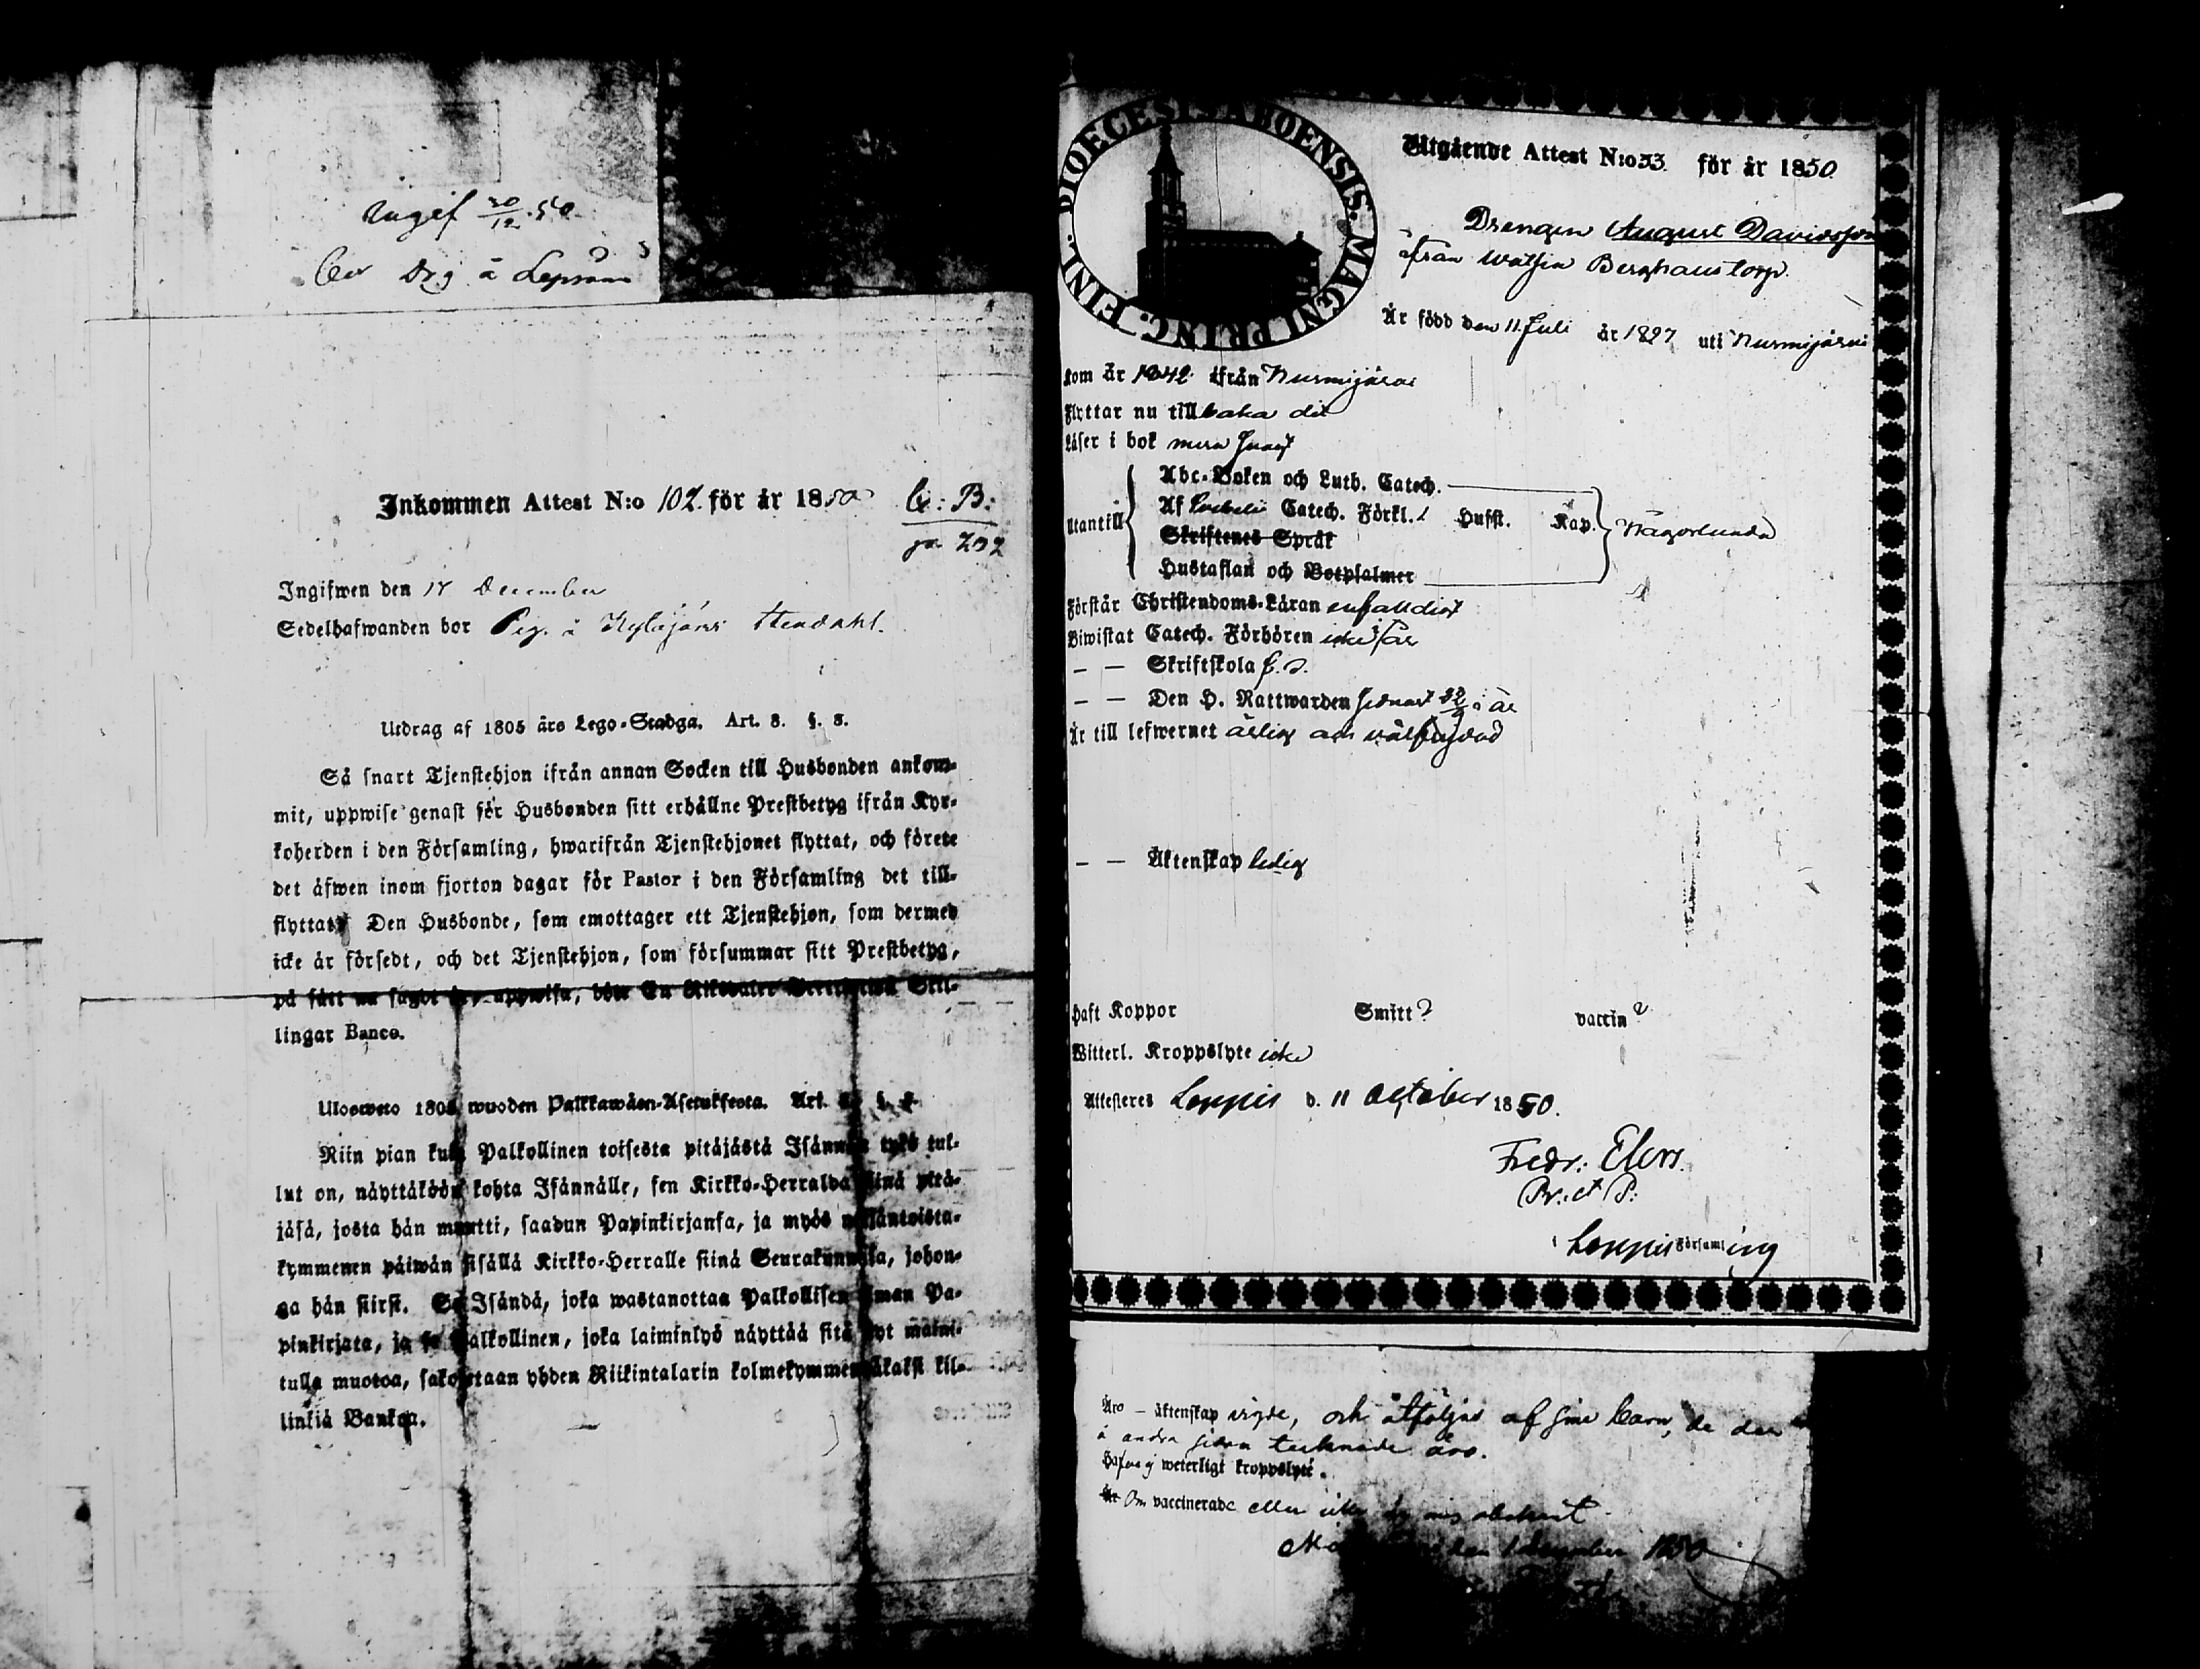 Ingif 20/12 50
bor Drg å Lepsamä
Inkommen Attest N:o 102 för år 1850
C: B:
pa 202
Ingifwen den 17 December
Sedelhafwanden bor Pig. å Kyläjoki Stendahl.
Utdrag af 1805 års Lego-Stadga. Art. 8. §. 8.
Så snart Tjenstehjon ifrån annan Socken till Husbonden ankom-
mit, uppwise genast för Husbonden sitt erhållne Prestbetyg ifrån Kyr-
koherden i den Församling, hwarifrån Tjenstehjonet flyttat, och förete
det äfwen inom fjorton dagar för Pastor i den Församling det till-
flyttat. Den Husbonde, som emottager ett Tjenstehjon, som dermed
icke är försedt, och det Tjenstehjon, som försummar sitt Prestbetyg,
på sätt nu sagdt är, uppwisa, böte En Riksdaler Skil-
lingar Banco.
Ulosweto 1805 wuoden Palkkawäen-Asetuksesta. Art. §.
Niin pian kuin Palkollinen toisesta pitäjästä Isännän tykö tul-
lut on, näyttäköön kohta Isännälle, sen Kirkko-Herralda siinä pitä-
jäsä, josta hän muutti, saadun Papinkirjansa, ja myös neljäntoista-
kymmenen päiwän sisällä Kirkko-Herralle siinä Seurakunnasa, johon-
ga hän siirsi. Se Isändä, joka wastanottaa Palkollisen ilman Pa-
pinkirjata, ja se Palkollinen, joka laiminlyö näyttää sitä nyt maini-
tulla muotoa, sakotetaan yhden Riikintalarin kolmekymmentäkaksi kil-
linkiä Bankoa.
DIOECESIS ABOENSIS. MAGNI PRINC. FINL.
Utgående Attest N:o 53. för år 1850.
Drengen August Davidsson
ifrån Watsia Berghaus torp.
Är född den 11 Juli år 1827 uti Nurmijärvi
kom år 1842 ifrån Nurmijärvi
Flyttar nu tillbaka dit
Läser i bok mera swagt
Utantill
Abc-Boken och Luth. Catech.
Af Catech. Förkl. Hufst. Kap.
Skriftenes Språk
Hustaflan och Botpsalmer
Någorlunda
Förstår Christendoms-Läran enfaldigt
Biwistat Catech. Förhören icke i år
— — Skriftskola f. d.
— — Den H. Nattwarden sednast 22/9 i år
Är till lefwernet ärlig och wälfrejdad
— — Äktenskap ledig
Haft Koppor Smitt? vaccin?
Witterl. Kroppslyte icke
Attesteras Loppis d. 11 October 1850.
Fredr. Elers
Pr. et P:
i Loppis Församling
Äro — äktenskap vigde, och åtföljas af sine barn, de der
å andra sidan tecknade äro.
Hafva ej weterligt kroppslyte.
Är Om vaccinerade eller icke är mig obekant.
den 1 December 1850